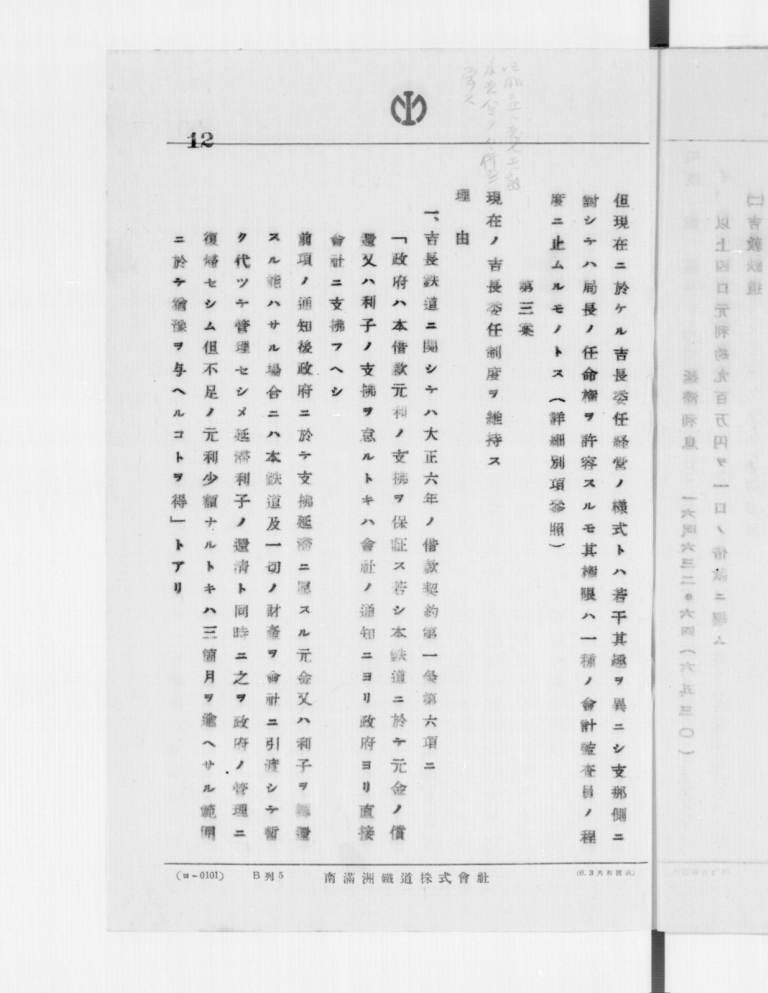 12
但現在ニ於ケル吉長委任経営ノ様式トハ若干其趣ヲ異ニシ支那側ニ
對シテハ局長ノ任命権ヲ許容スルモ其権限ハ一種ノ會計檢査員ノ程
度ニ止ムルモノトス(詳細別項參照)
第三案
現在ノ吉長委任制度ヲ維持ス
理由
一、吉長鉄道ニ関シテハ大正六年ノ借款契約第一條第六項ニ
「政府ハ本借款元利ノ支拂ヲ保証ス若シ本鉄道ニ於テ元金ノ償
還又ハ利子ノ支拂ヲ怠ルトキハ會社ノ通知ニヨリ政府ヨリ直接
會社ニ支拂フヘシ
前項ノ通知後政府ニ於テ支拂延滞ニ屬スル元金又ハ利子ヲ償還
スル能ハサル場合ニハ本鉄道及一切ノ財産ヲ會社ニ引渡シテ暫
ク代ツテ管理セシメ延滞利子ノ還清ト同時ニ之ヲ政府ノ管理ニ
復帰セシム但不足ノ元利少額ナルトキハ三箇月ヲ逾ヘサル範囲
ニ於テ猶豫ヲ与ヘルコトヲ得」トアリ
(ヨ-0101) B列5 南滿洲鐵道株式會社